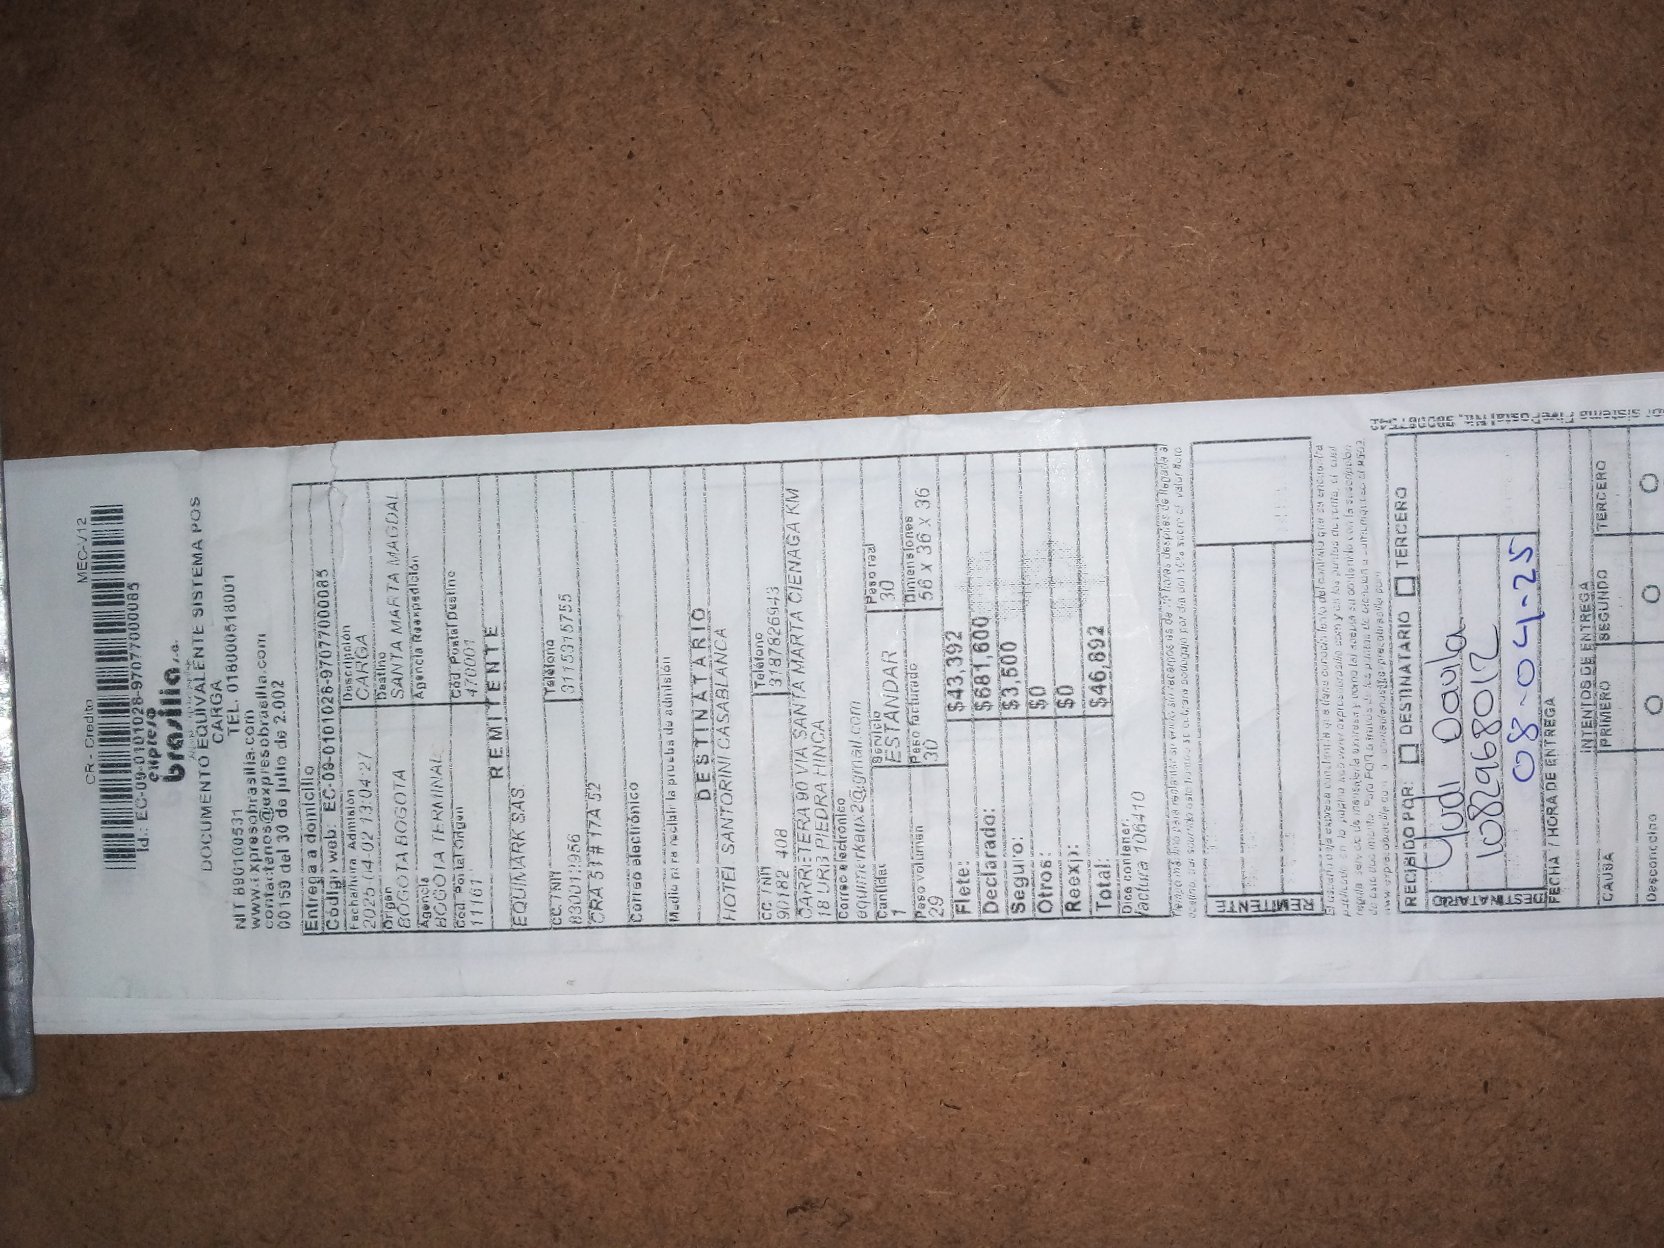 CR - Credito
MEC-V12
Id.: EC-09-0101028-97077000085
expreso
brasilia s.a.
DOCUMENTO EQUIVALENTE SISTEMA POS
CARGA
NIT 890100531 TEL. 018000518001
www.expresobrasilia.com
contactenos@expresobrasilia.com
00159 del 30 de julio de 2.002
Entrega a domicilio
Código web: EC-09-0101028-97077000085
Fecha/hora Admisión Descripción
2025-04-02 13:04:27 CARGA
Origen Destino
BOGOTA BOGOTA SANTA MARTA MAGDAL
Agencia Agencia Reexpedición
BOGOTA TERMINAL
Cód Postal Origen Cód Postal Destino
11161 470001
REMITENTE
EQUIMARK SAS.
CC / NIT Teléfono
3115315755
CRA 51 # 17A 52
Correo electrónico
Medio para recibir la prueba de admisión
DESTINATARIO
HOTEL SANTORINI CASABLANCA
CC / NIT Teléfono
90182 408 3187826943
CARRETERA 90 VIA SANTA MARTA CIENAGA KM
18 URB PIEDRA HINCA
Correo electrónico
Cantidad Servicio Peso real
1 ESTANDAR 30
Peso volumen Peso facturado Dimensiones
29 30 56 X 36 X 36
Flete: $43,392
Declarado: $681,600
Seguro: $3,500
Otros: $0
Reexp: $0
Total: $46,892
Dice contener:
factura 106410
REMITENTE
RECIBIDO POR: DESTINATARIO TERCERO
DESTINATARIO
Yudi Davila
1082968012
08-04-25
FECHA / HORA DE ENTREGA
INTENTOS DE ENTREGA
CAUSA PRIMERO SEGUNDO TERCERO
Desconocido